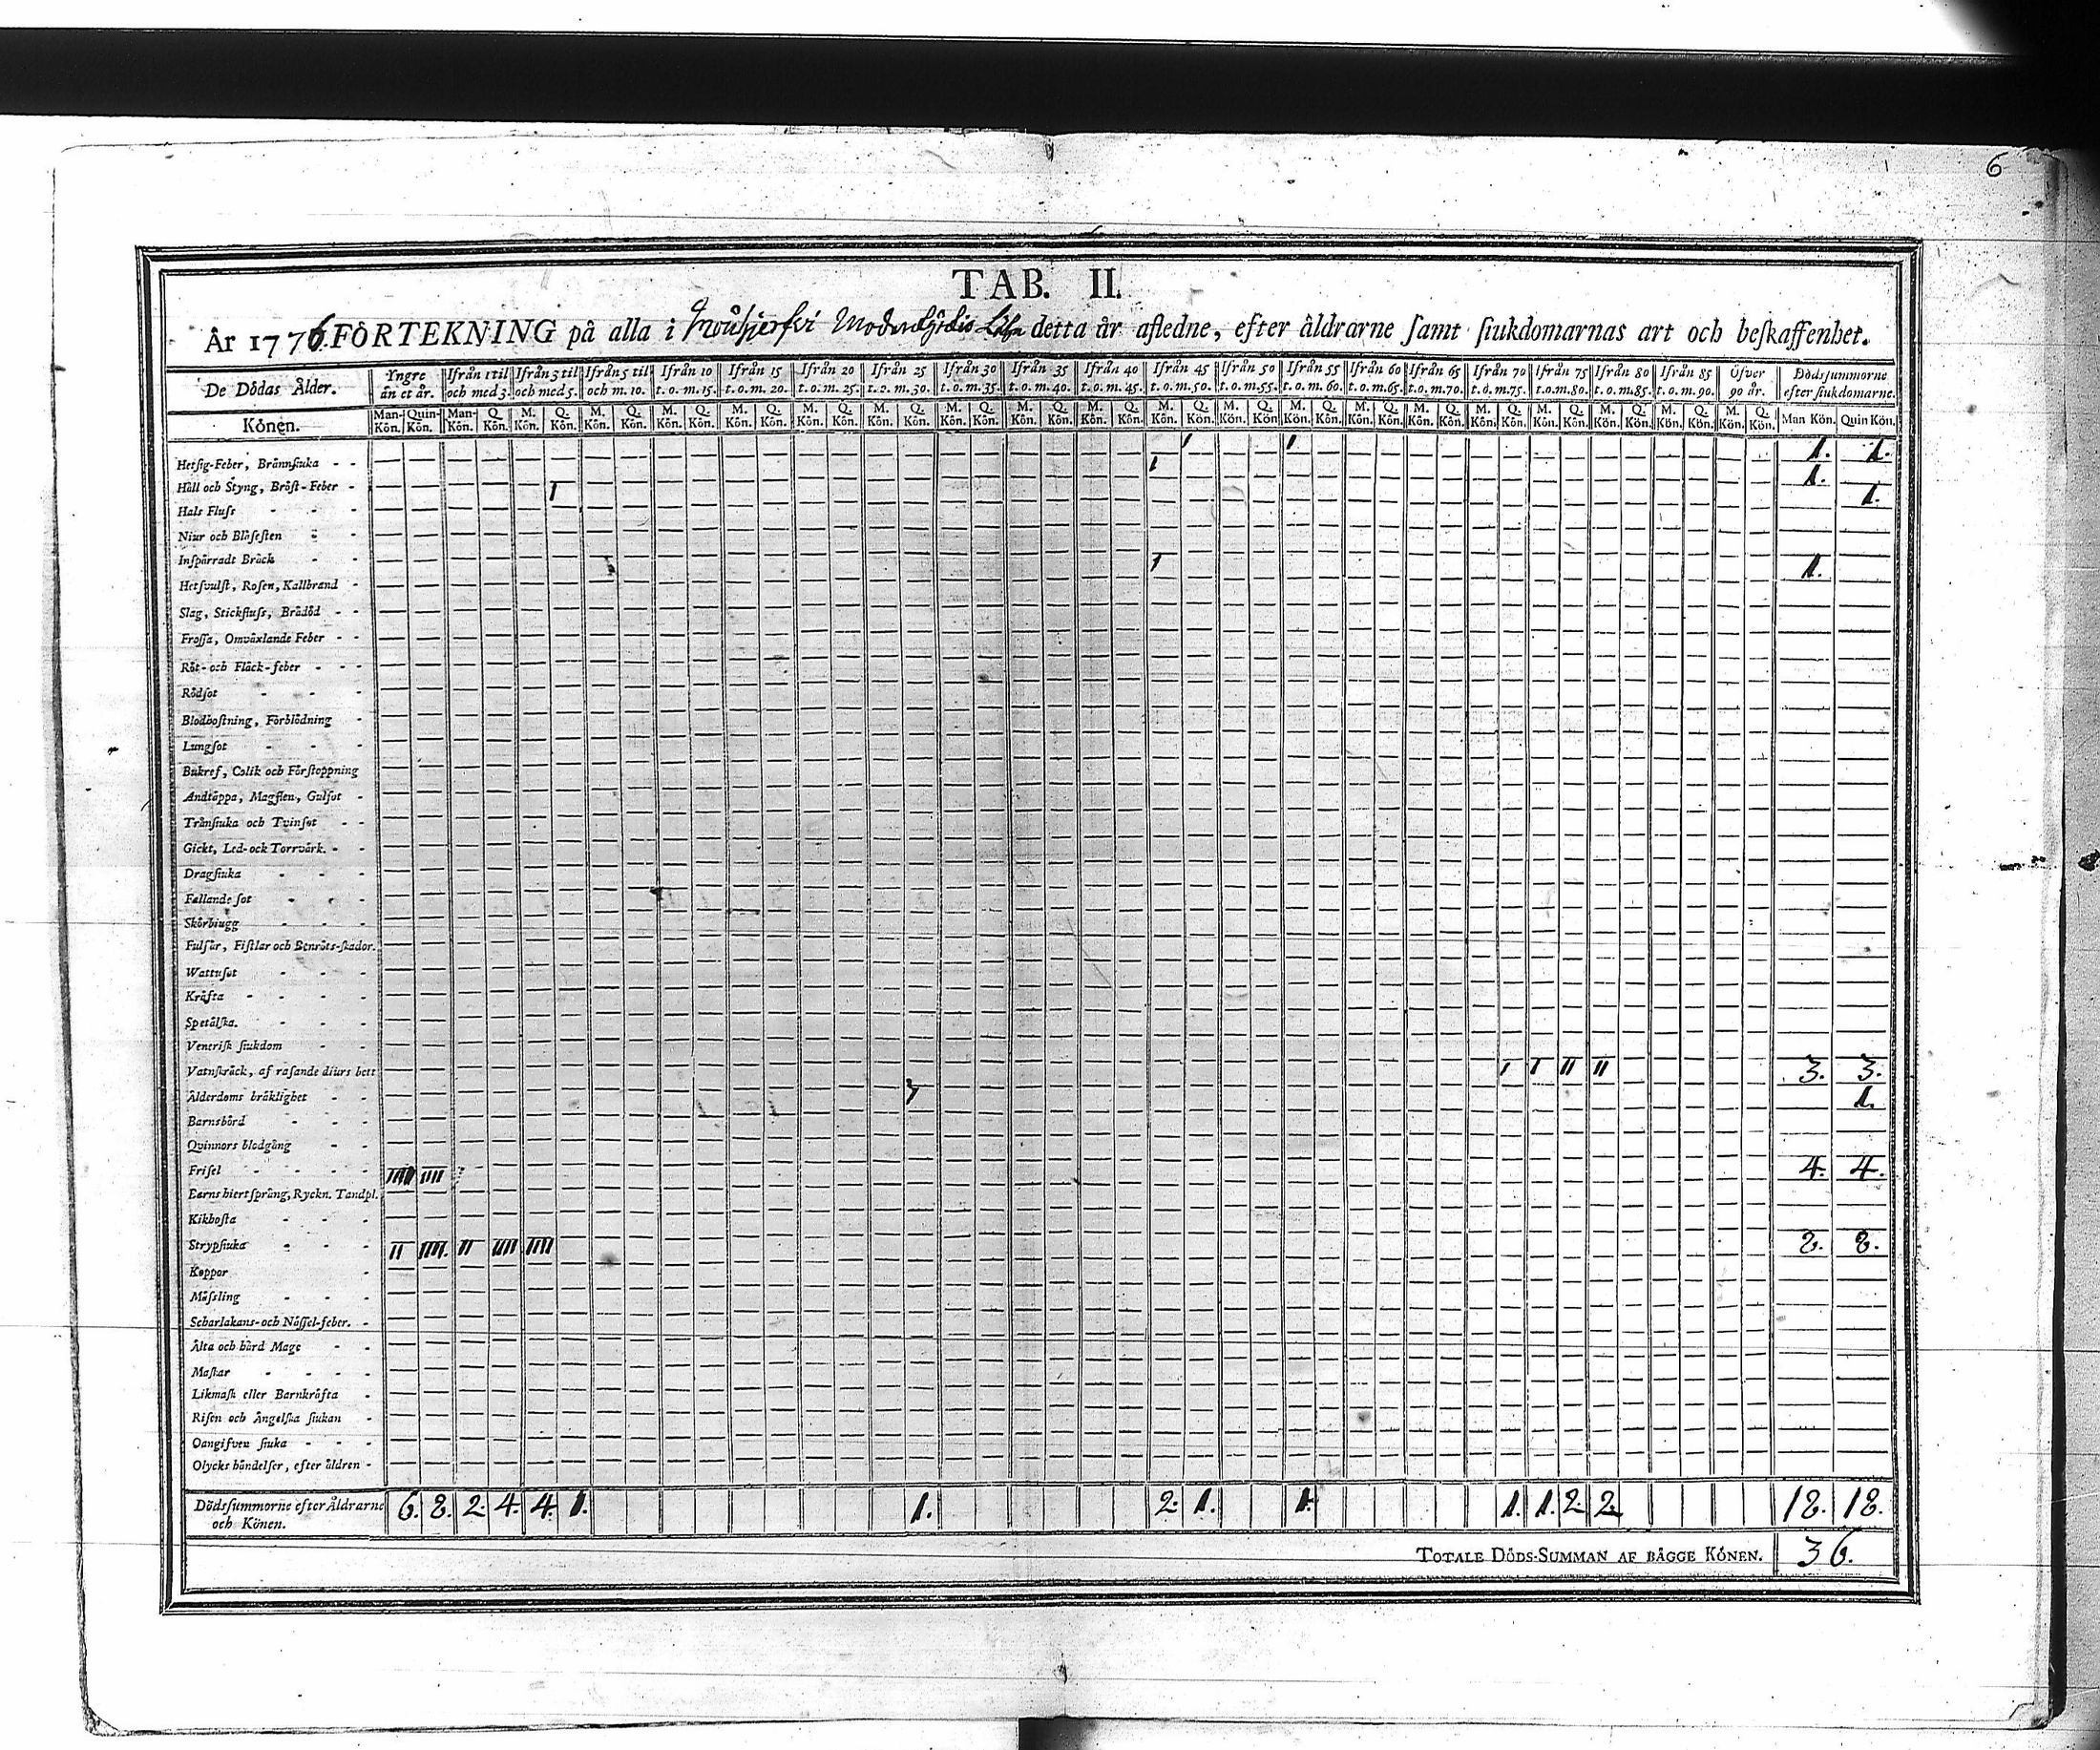 6
TAB. II.
År 1776. FÖRTEKNING på alla i detta år afledne, efter åldrarne samt siukdomarnas art och beskaffenhet.
De Dödas Ålder. Yngre än et år. Ifrån 1 til och med 3. Ifrån 3 til och med 5. Ifrån 5 til och m. 10. Ifrån 10 t.o.m. 15. Ifrån 15 t.o.m. 20. Ifrån 20 t.o.m. 25. Ifrån 25 t.o.m. 30. Ifrån 30 t.o.m. 35. Ifrån 35 t.o.m. 40. Ifrån 40 t.o.m. 45. Ifrån 45 t.o.m. 50. Ifrån 50 t.o.m. 55. Ifrån 55 t.o.m. 60. Ifrån 60 t.o.m. 65. Ifrån 65 t.o.m. 70. Ifrån 70 t.o.m. 75. Ifrån 75 t.o.m. 80. Ifrån 80 t.o.m. 85. Ifrån 85 t.o.m. 90. Öfver 90 år. Dödssummorne efter siukdomarne.
Könen. Man-Kön. Quin-Kön. Man-Kön. Q. Kön. M. Kön. Q. Kön. M. Kön. Q. Kön. M. Kön. Q. Kön. M. Kön. Q. Kön. M. Kön. Q. Kön. M. Kön. Q. Kön. M. Kön. Q. Kön. M. Kön. Q. Kön. M. Kön. Q. Kön. M. Kön. Q. Kön. M. Kön. Q. Kön. M. Kön. Q. Kön. M. Kön. Q. Kön. M. Kön. Q. Kön. M. Kön. Q. Kön. M. Kön. Q. Kön. M. Kön. Q. Kön. M. Kön. Q. Kön. M. Kön. Q. Kön. Man Kön. Quin Kön.
Hetsig-Feber, Brännsiuka - - 1 1 1. 1.
Håll och Styng, Bröst-Feber - 1 1.
Hals Fluss - - - 1 1.
Niur och Blåsesten - -
Inspärradt Bråck - -
Hetsvulst, Rosen, Kallbrand - 1 1.
Slag, Stickfluss, Brådöd - -
Frossa, Omväxlande Feber - -
Röt- och Fläck-feber - - -
Rödsot - - -
Blodhostning, Förblödning -
Lungsot - - -
Bukref, Colik och Förstoppning
Andtäppa, Magplen, Gulsot -
Trånsiuka och Tvinsot - -
Gickt, Led- ock Torrvärk. - -
Dragsiuka - - -
Fallande sot - - -
Skörbiugg - - -
Fulsår, Fistlar och Benröts-skador.
Wattusot - - -
Kräfta - - - -
Spetälska. - - -
Venerisk siukdom - -
Vatnskräck, af rasande diurs bett
Ålderdoms bräklighet - - I I II II 3. 3.
Barnsbörd - - - 1 1.
Qvinnors blodgång - -
Frisel - - - -
Barns hiertsprång, Ryckn. Tandpl. IIII IIII 4. 4.
Kikhosta - - -
Strypsiuka - - -
Koppor - II IIII II IIII IIII 8. 8.
Mässling - - -
Scharlakans- och Nässel-feber. -
Älta och hård Mage - -
Maskar - - - -
Likmask eller Barnkräfta -
Risen och Ängelska siukan -
Oangifven siuka - - -
Olycks händelser, efter åldren -
Dödssummorne efter Åldrarne och Könen. 6. 8. 2. 4. 4. 1. 1. 2. 1. 1. 1. 1. 2. 2. 18. 18.
TOTALE DÖDS-SUMMAN AF BÄGGE KÖNEN. 36.